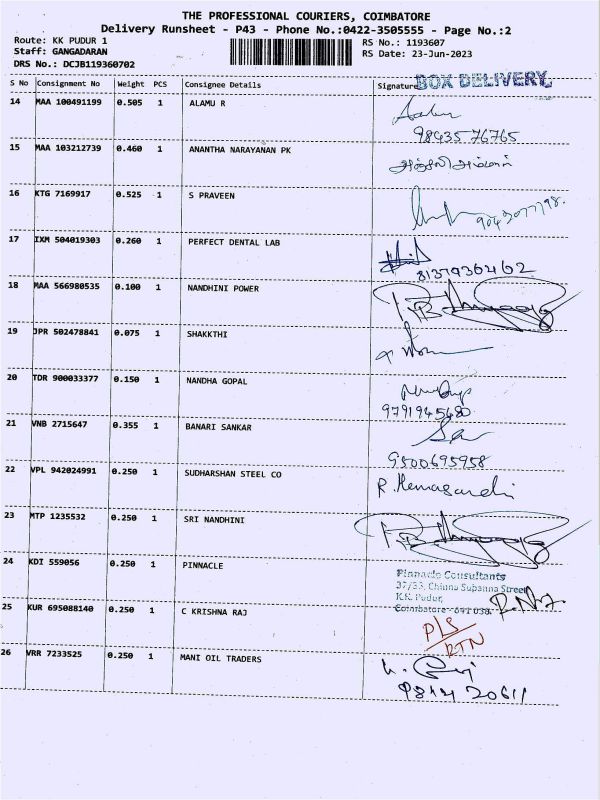 THE PROFESSIONAL COURIERS, COIMBATORE
Delivery Runsheet - P43 - Phone No.:0422-3505555 - Page No.:2
Route: KK PUDUR 1 RS No.: 1193607
Staff: GANGADARAN RS Date: 23-Jun-2023
DRS No.: DCJB119360702
S No Consignment No Weight PCS Consignee Details Signature BOX DELIVERY
14 MAA 100491199 0.505 1 ALAMU R
98435 76765
15 MAA 103212739 0.460 1 ANANTHA NARAYANAN PK
16 KTG 7169917 0.525 1 S PRAVEEN
17 IXM 504019303 0.260 1 PERFECT DENTAL LAB
18 MAA 566980535 0.100 1 NANDHINI POWER
19 JPR 502478841 0.075 1 SHAKKTHI
20 TDR 900033377 0.150 1 NANDHA GOPAL
9791945480
21 VNB 2715647 0.355 1 BANARI SANKAR
9500695958
22 VPL 942024991 0.250 1 SUDHARSHAN STEEL CO
R. Hemasandi
23 MTP 1235532 0.250 1 SRI NANDHINI
24 KDI 559056 0.250 1 PINNACLE
Pinnacle Consultants
37/33, Chinna Subanna Street
K.K. Pudur,
Coimbatore - 641 038.
25 KUR 695088140 0.250 1 C KRISHNA RAJ
PLS
RTN
26 VRR 7233525 0.250 1 MANI OIL TRADERS